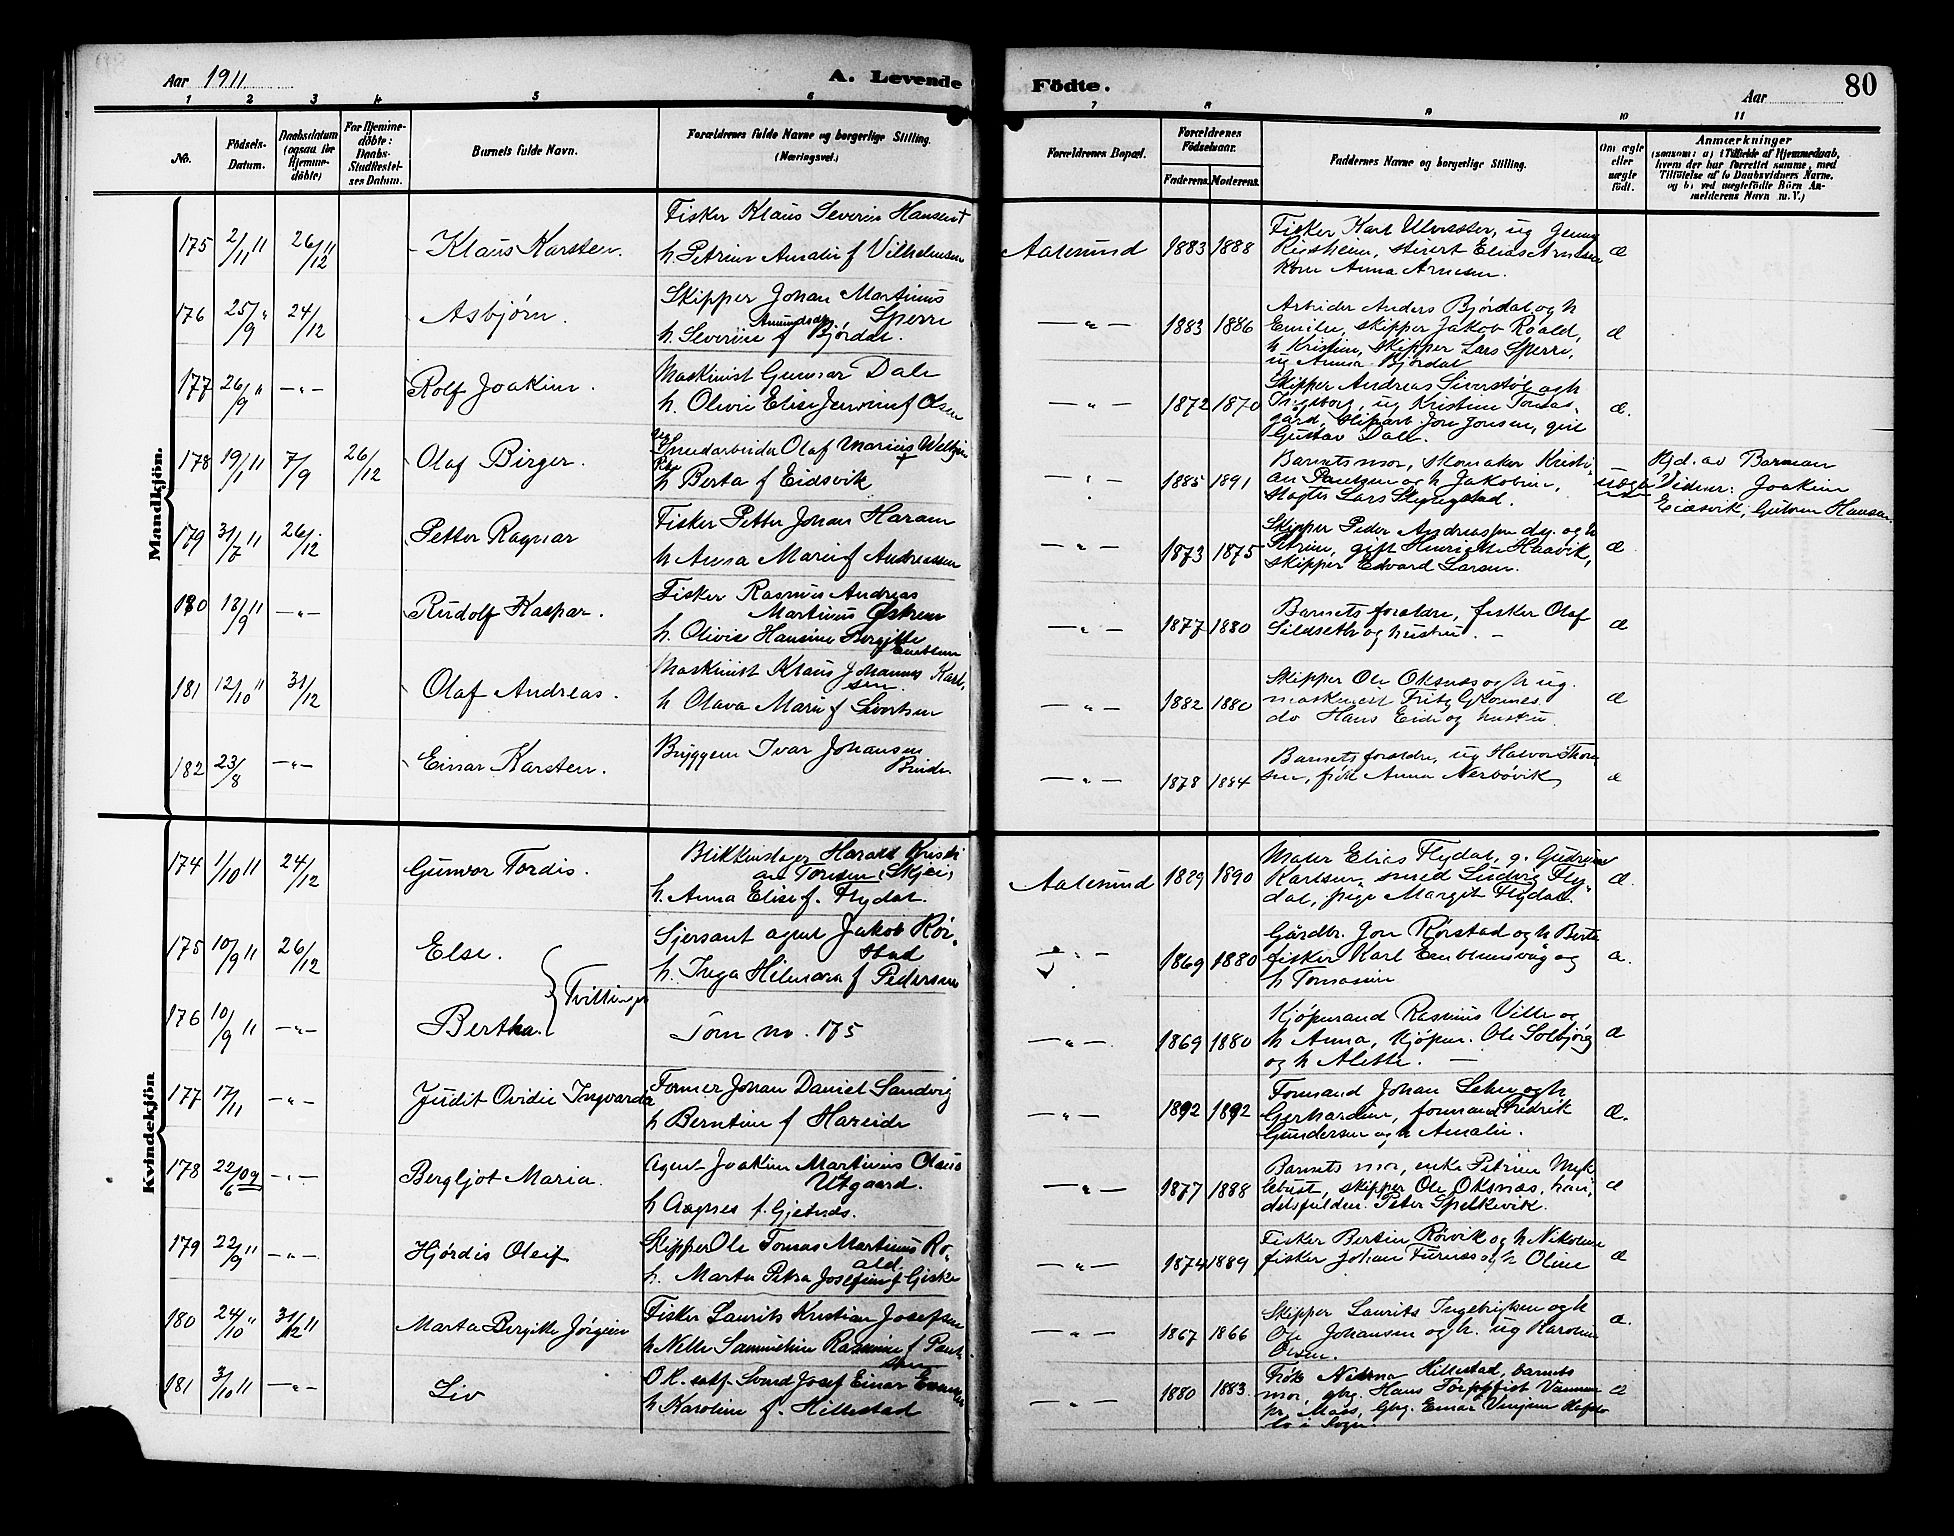 Aar 1911
A. Levende Födte.
Aar
80
1 2 3 4 5 6 7 8 9 10 11
No.
Födsels-
Datum.
Daabsdatum
(ogsaa for
Hjemme-
döbte)
For Hjemme-
döbte:
Daabs-
Stadfæstel-
ses Datum.
Barnets fulde Navn.
Forældrenes fulde Navne og borgerlige Stilling.
(Næringsvei.)
Forældrenes Bopæl.
Forældrenes
Födselsaar.
Faderens.
Moderens.
Faddernes Navne og borgerlige Stilling.
Om ægte
eller
uægte
födt.
Anmærkninger
(saasom: a) i Tilfælde af Hjemmedaab,
hvem der har forrettet samme, med
Tilföielse af to Daabsvidners Navne.
og b) ved uægtefödte Börn An-
melderens Navn m. V.)
Mandkjön.
175 2/11 11 26/12 11 Klaus Karsten.
Fisker Klaus Severin Hansen †
h. Petrine Amalie f Vilhelmsen
Aalesund 1883 1888
Fisker Karl Ulvesæter, ug
Elias Arnesen
Kone Anna Arnesen.
æ
176 25/9 " 24/12 Asbjørn.
Skipper Johan Martinus
Sperre
h. Severine Amundsdtr f Bjørdal.
— " — 1883 1886
Arbeider Anders Bjørdal og h
Emilie, skipper Jakob Roald,
h Kristine, skipper Lars Sperre,
ug Anna Bjørdal
æ
177 26/9 " — " — Rolf Joakim.
Maskinist Gunnar Dale
h. Olivie Elise f Olsen
— " — 1872 1870
Skipper Andreas Siverstøl og h
Ingeborg, ug Kristine Tomas-
gård, Jon Jonsen, gift
Gustav Dale.
æ.
178 19/1 11 7/9 26/12 Olaf Birger.
Smedarbeider Olaf Marius
h Berta f Eidsvik
— " — 1885 1891
Barnets mor, skomaker Kristi-
an Paulsen og h Jakobine,
slagter Lars
uægte
Hjd. av Barman
Vidner: Joakim
Eidsvik, Hansen.
179 31/7 11 26/12 Petter Ragnar
Fisker Petter Johan Haram
h Anna Marie f Andreassen
— " — 1873 1875
Skipper Peder Andreassen og h
Petrine, gift Haavik,
skipper Edvard Larsen.
æ
180 18/9 11 — " — Rudolf Kaspar.
Fisker Rasmus Andreas
Martinus Østrem
h. Olivie Hansine Bergitte
f Emblem
— " — 1877 1880
Barnets forældre, fisker Olaf
Sildseth og hustru. —
æ
181 12/10 11 31/12 Olaf Andreas.
Maskinist Klaus Johannes Karl-
sen.
h Olava Marie f Sivertsen
— " — 1882 1880
Skipper Ole Oksnæs og h ug.
maskinist Fritz
do Hans Eide og hustru.
æ
182 23/8 — " — Einar Karsten.
Bryggem Ivar Johansen
— " — 1878 1884
Barnets forældre, ug Halvor Thor-
sen, frøk Anna Nerbøvik
æ
Kvindekjön
174 1/10 11 24/12 Gunvor Tordis.
Blikkenslager Harald Kristi
an Tonsen (Skjei)
h. Anna Elise f. Flydal.
Aalesund 1889 1890
Maler Elias Flydal, g. Gudrun
Karlsen, smed Ludvig Fly-
dal, pige Margit Flydal.
æ.
175 10/9 11 26/12 Else.
Tvillinger
Sjersant agent Jakob Rør-
stad
h. Inga Hilmara f Pedersen
— " — 1869 1880
Gårdbr. Jon Rørstad og h Berte
fisker Karl Emblemsvåg og
h Tomasine
æ.
176 10/9 11 — " — Bertha.
Som no. 175
— " — 1869 1880
Kjøpmand Rasmus Ville og
h Anna, Kjøpm. Ole Solbjørg
og h Alette. —
æ
177 17/11 — " — Judit Ovidie Ingvarda
Former Johan Daniel Sandvig
h Berntine f Hareide
— " — 1892 1892
Formand Johan og h
Gerhardine, formand Fredrik
Gundersen og h Amalie.
æ.
178 22/6 09 — " — Bergljot Maria.
Agent Joakim Martinus Olaus
Utgaard.
h Aagnes f. Gjetnæs.
— " — 1877 1888
Barnets mor, enke Petrine Myk
lebust, skipper Ole Oksnæs, han-
delsfuldm. Peter Spelkevik.
æ
179 22/9 11 — " — Hjørdis Oleif
Skipper Ole Tomas Martinus Ro-
ald.
h. Marta Petra Josefine f Giske
— " — 1874 1889
Fisker Bertin Rørvik og h Nikoline
fisker Johan Furnæs og h Oline
æ
180 24/10 " 31/12 11 Marta Bergitte Jørgine
Fisker Laurits Kristian Josefsen
h Nelle Samueline Rasmine f Paul-
sen
— " — 1867 1866
Skipper Laurits Ingebrigtsen og h
Ole Johansen og h. ug Karoline
Olsen.
æ.
181 3/10 11 — " — Liv
Josef Einar
h Karoline f. Hillestad
— " — 1880 1883.
Frøk Hillestad, barnets
mor, gbg. Hans
Gbg. Einar
i Sogn.
æ